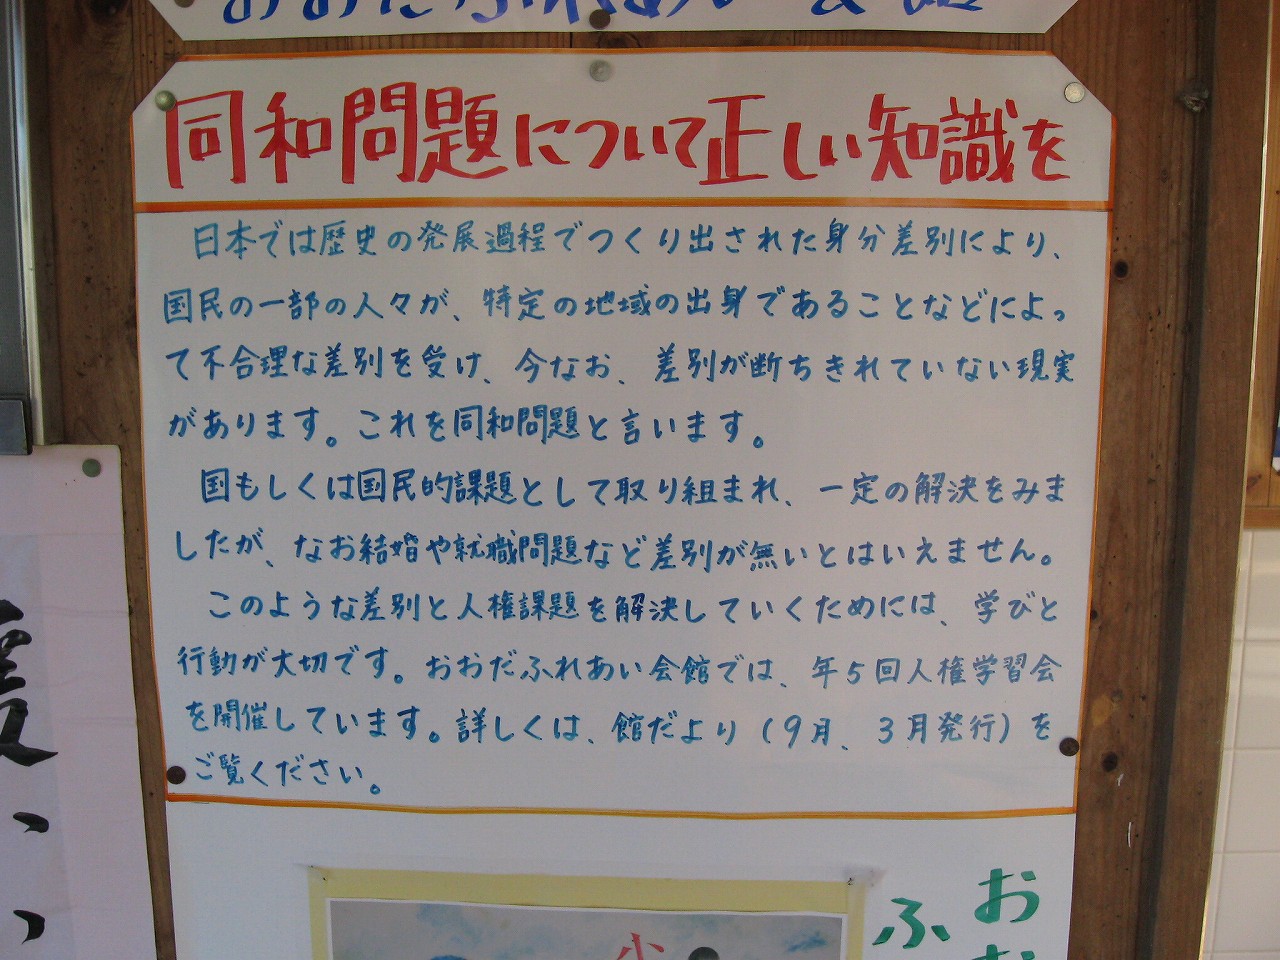 おおだふれあい会館
同和問題について正しい知識を
日本では歴史の発展過程でつくり出された身分差別により、
国民の一部の人々が、特定の地域の出身であることなどによっ
て不合理な差別を受け、今なお、差別が断ちきれていない現実
があります。これを同和問題と言います。
国もしくは国民的課題として取り組まれ、一定の解決をみま
したが、なお結婚や就職問題など差別が無いとはいえません。
このような差別と人権課題を解決していくためには、学びと
行動が大切です。おおだふれあい会館では、年5回人権学習会
を開催しています。詳しくは、館だより(9月、3月発行)を
ご覧ください。
おお
ふ